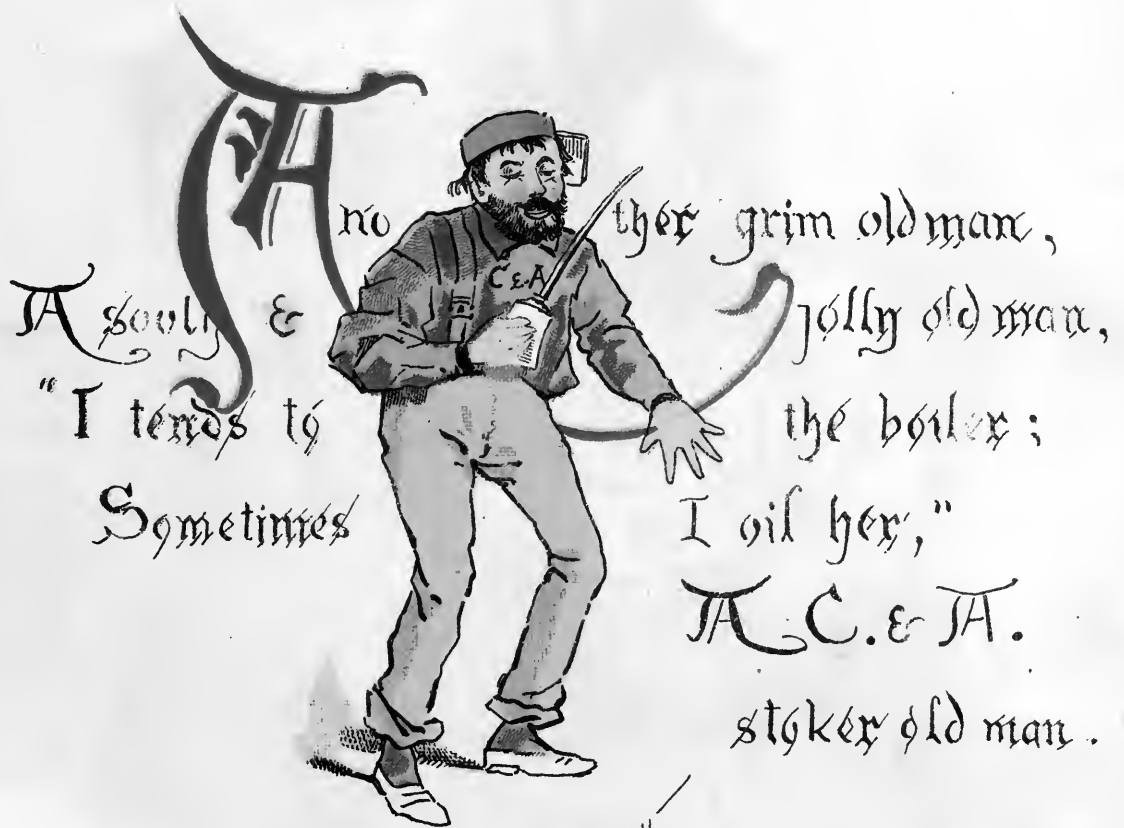 Another grim old man,
C & A
A sooty & jolly old man,
"I tends to the boiler;
Sometimes I oil her,"
A C. & A.
stoker old man.